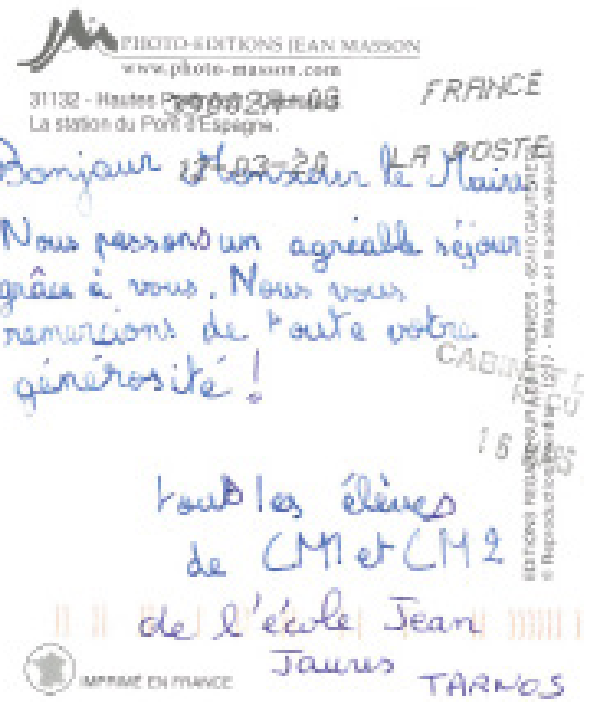 PHOTO-EDITIONS JEAN MASSON
www.photo-masson.com
31132 - Hautes
La station du Pont d'Espagne.
FRANCE
LA POSTE
Bonjour Monsieur le Maire
Nous passons un agréable séjour
grâce à vous. Nous vous
remercions de toute votre
générosité !
tous les élèves
de CM1 et CM2
de l'école Jean
Jaures
TARNOS
CABINET
16
IMPRIMÉ EN FRANCE